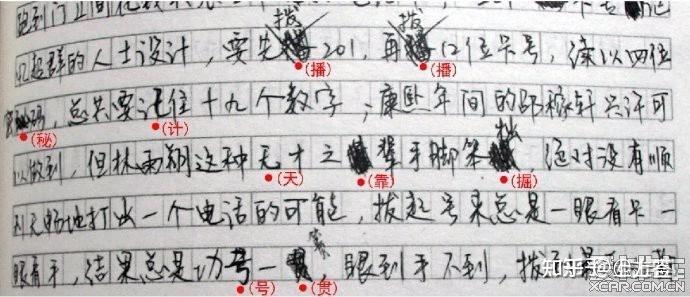 忆超群的人士设计，要先拨201，再拨12位卡号，续以四位
密码，总共要计住十九个数字；康熙年间的邵稼轩兴许可
以做到，但林雨翔这种天才之辈手脚笨拙，绝对没有顺
利无畅地打出一个电话的可能，拨起号来总是一眼看卡一
眼看手，结果总是功亏一篑，眼到手不到，拨
(播)
(播)
(秘)
(计)
(天)
(靠)
(掘)
(号)
(贯)
知乎
XCAR.COM.CN